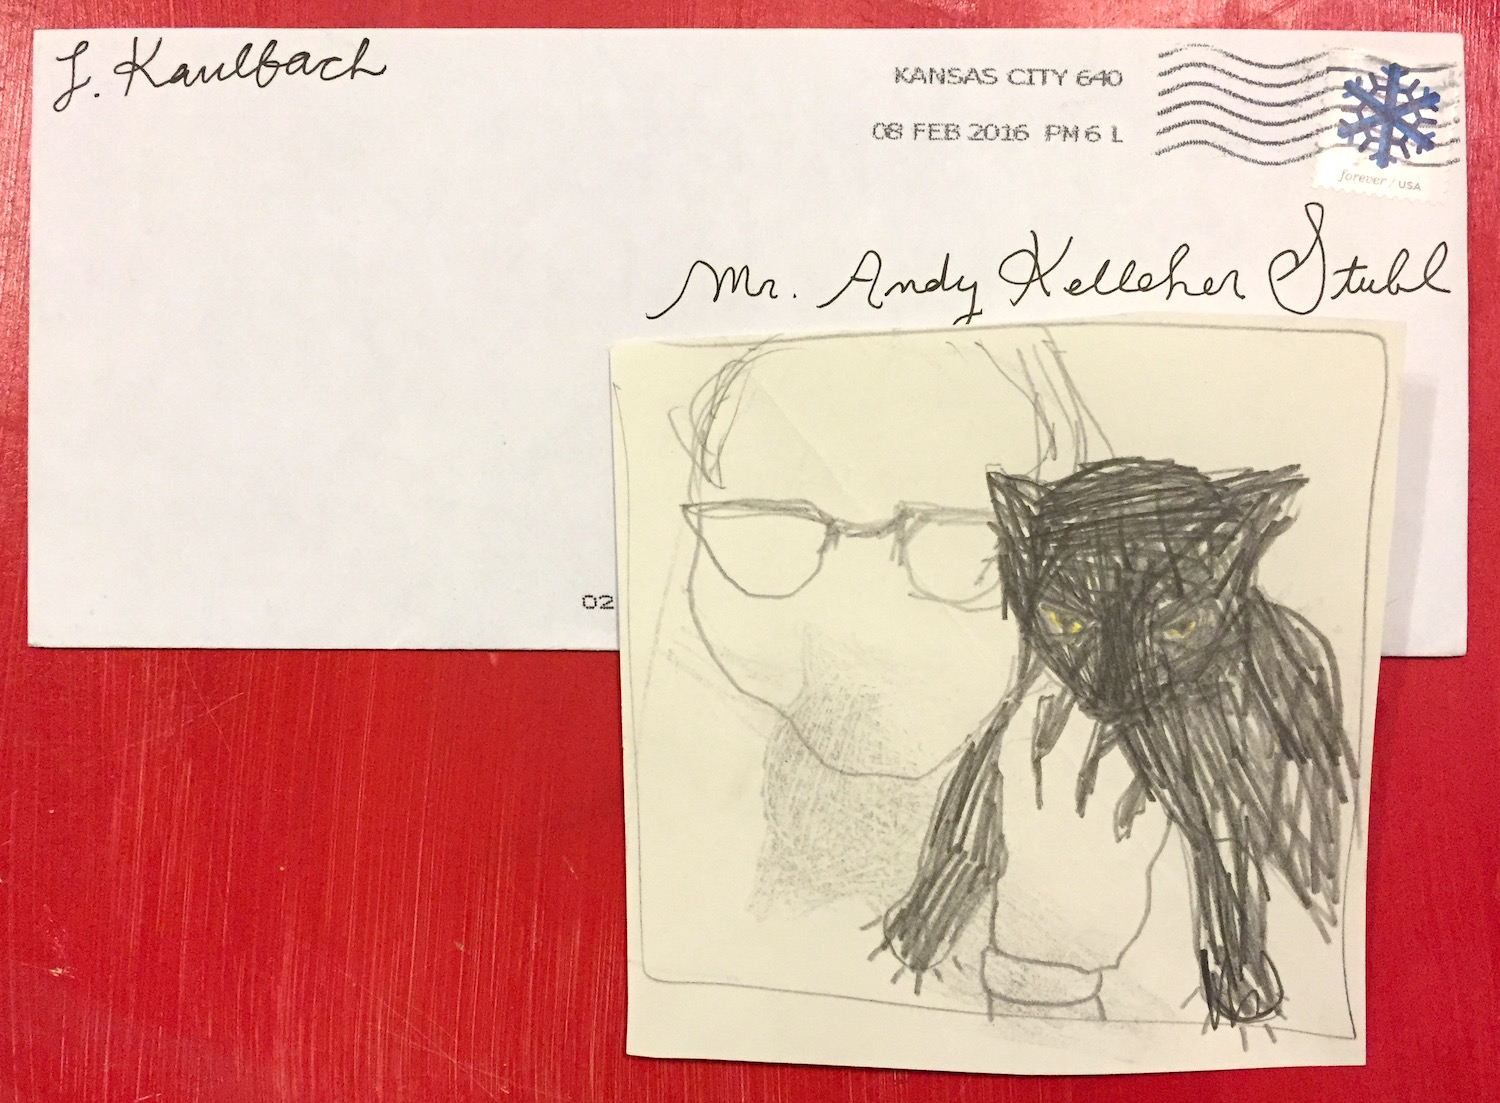 L. Kaulbach
KANSAS CITY 640
08 FEB 2016 PM 6 L
forever / USA
Mr. Andy Kelleher Stuhl
02